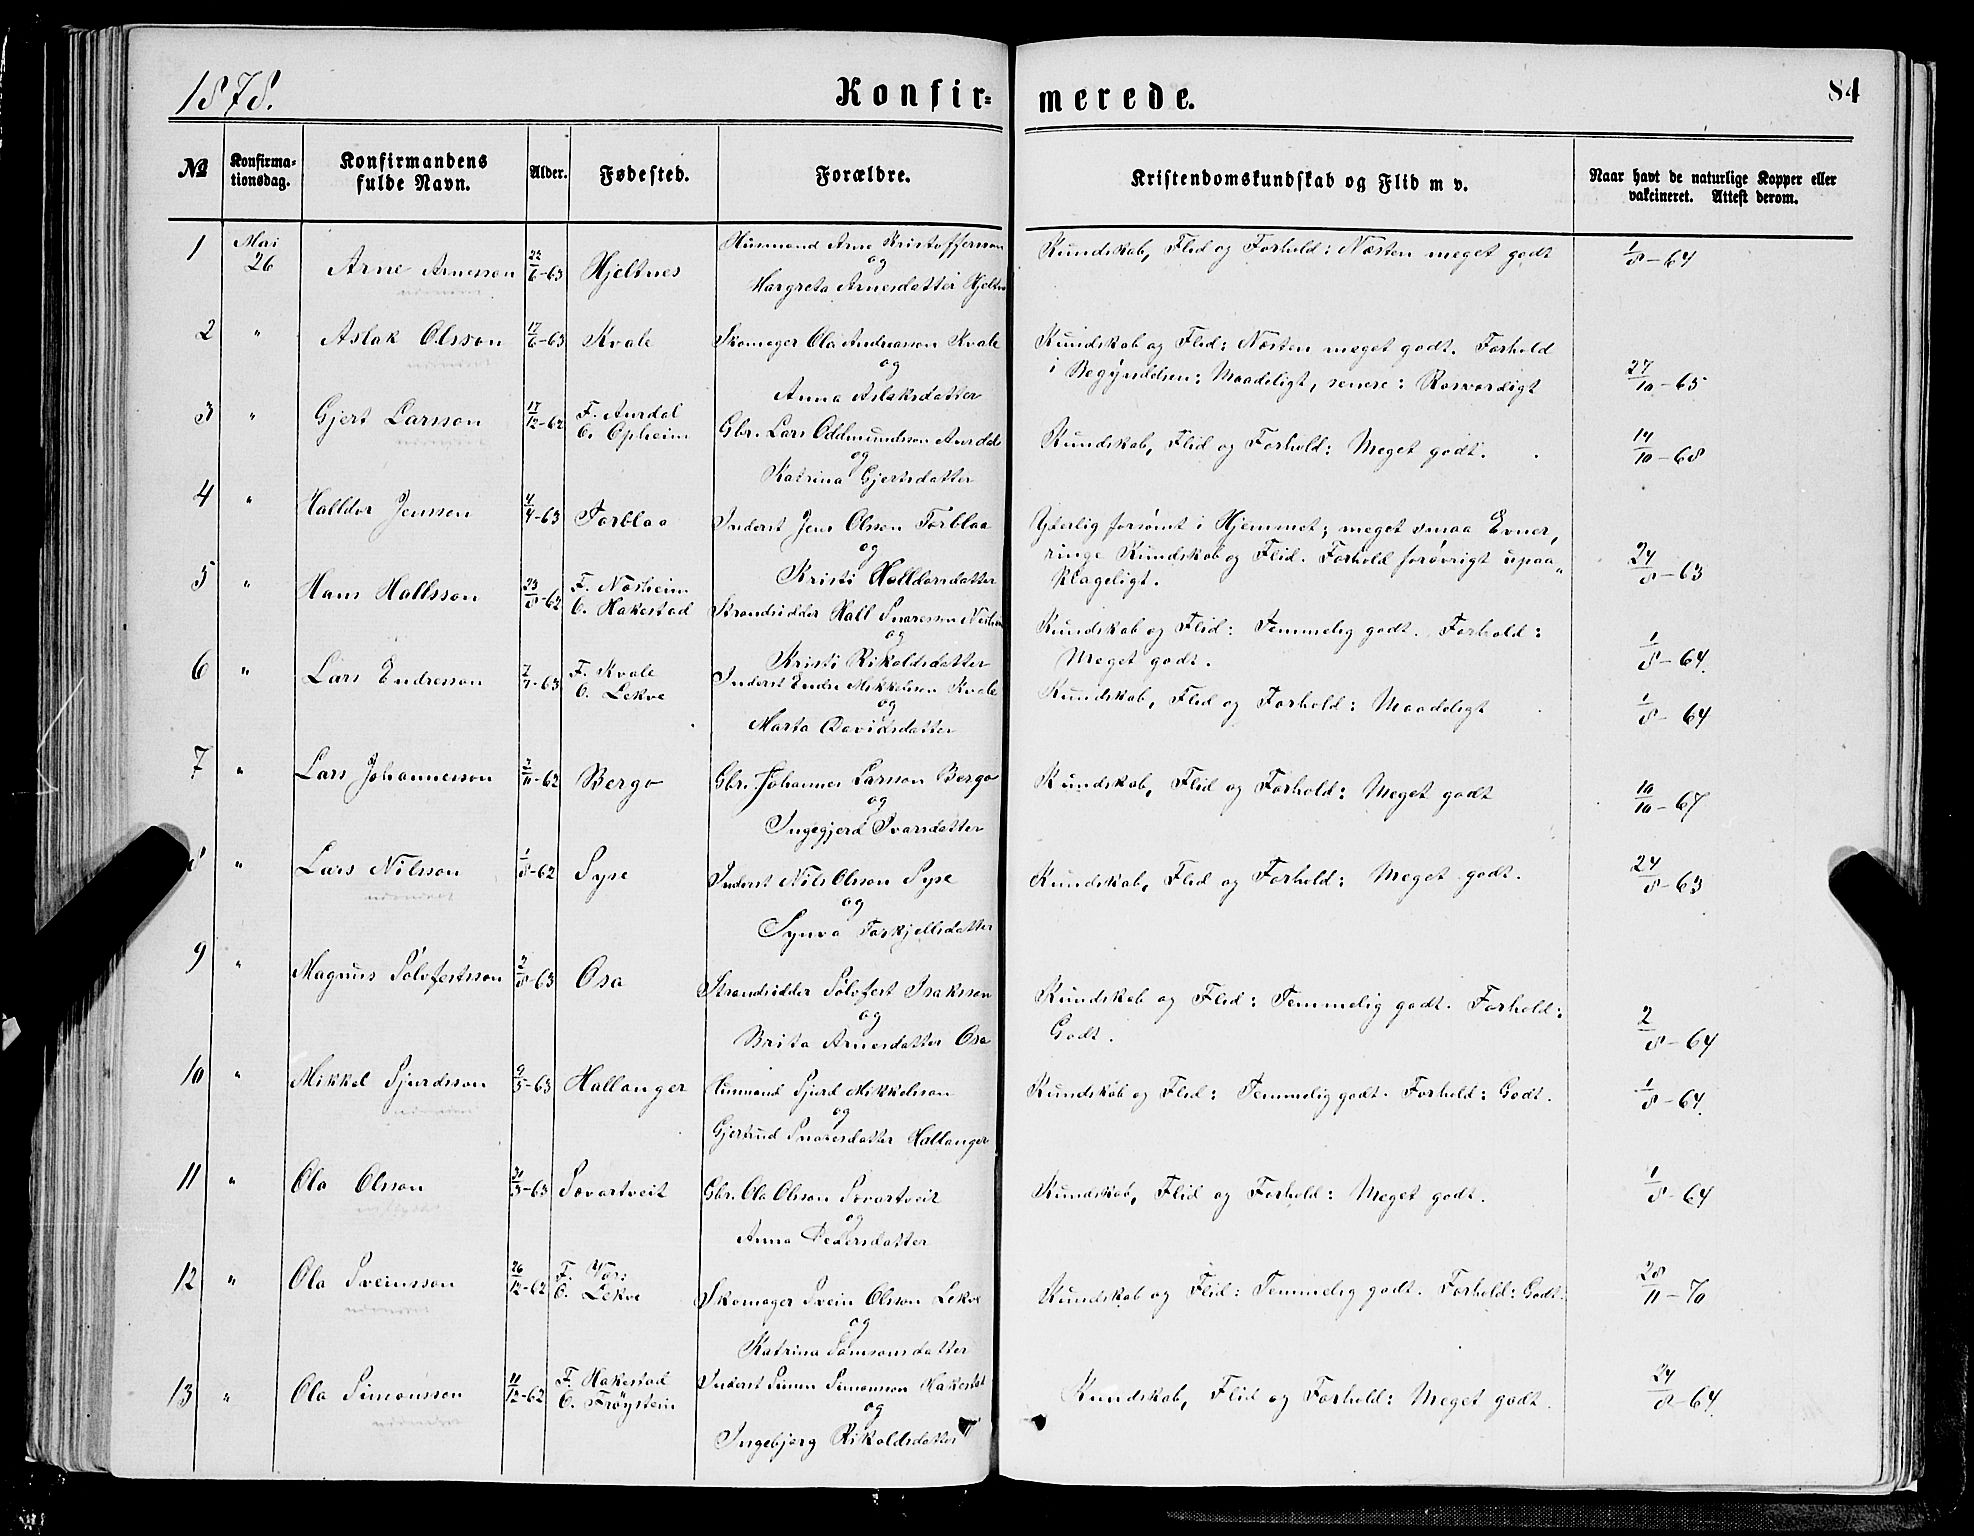 1878.
Konfir-
merede.
84
№
Konfirma-
tionsdag.
Konfirmandens
fulde Navn.
Alder.
Fødested.
Forældre.
Kristendomskundskab og Flid m v.
Naar havt de naturlige Kopper eller
vakcineret. Attest derom.
1 Mai 26 Arne Arnesson 22/6-63 Hjeltnes
Husmand Arne Kristoffersson
og
Margreta Arnesdatter
Kundskab, Flid og Forhold: Næsten meget godt
1/8-64
2 " Aslak Olsson 17/6-63 Kvale
Skomager Ola Andreasson Kvale
og
Anna Aslaksdatter
Kundskab og Flid: Næsten meget godt. Forhold
i Begyndelsen: Maadeligt, senere: Rosværdigt
27/10-65
3 " Gjert Larsson 17/12-62 F. Aurdal
O. Opheim
Gbr. Lars Oddmundson Aurdal
og
Katrina Gjertsdatter
Kundskab, Flid og Forhold: Meget godt.
14/10-68
4 " Halldor Jensson 4/4-63 Torblaa
Inderst Jens Olsson Torblaa
og
Kristi Halldorsdatter
Yderlig forsömt i Hjemmet; meget smaa Evner,
ringe Kundskab og Flid. Forhold forövrigt upaa„
klageligt.
24/8-63
5 " Hans Hallsson 23/8-62 F. Næsheim
O. Hakestad
Strandsidder Hall Snaresson
og
Kristi Rikoldsdatter
Kundskab og Flid: Temmelig godt. Forhold:
Meget godt.
1/8-64
6 " Lars Endresson 7/7-63 F. Kvale
O. Lekve
Inderst Endre Mikkelson Kvale
og
Marta Davidsdatter
Kundskab, Flid og Forhold: Maadeligt
1/8-64
7 " Lars Johannesson 3/11-62 Bergo
Gbr. Johannes Larsson Bergo
og
Ingegjerd Ivarsdatter
Kundskab, Flid og Forhold: Meget godt
10/10-67
8 " Lars Nilsson 1/8-62 Syse
Inderst Nils Olsson Syse
og
Synva Torkjellsdatter
Kundskab, Flid og Forhold: Meget godt.
24/8-63
9 " Magnus Sölvfestsson 2/8-63 Osa
Strandsidder Sölvfest Isaksson
og
Brita Arnesdatter Osa
Kundskab og Flid: Temmelig godt. Forhold:
Godt.
2/8-64
10 " Mikkel Sjurdsson 9/5-63 Hallanger
Husmand Sjurd Mikkelsson
og
Gjertrud Snaresdatter Hallanger
Kundskab og Flid: Temmelig godt. Forhold: Godt.
1/8-64
11 " Ola Olsson 31/3-63 Sævartveit
Gbr. Ola Olsson Sævartveit
og
Anna Pedersdatter
Kundskab, Flid og Forhold: Meget godt.
1/8-64
12 " Ola Sveinsson 26/12-62 F. Vos:
O. Lekve
Skomager Svein Olsson Lekve
og
Katrina Samsonsdatter
Kundskab og Flid: Temmelig godt. Forhold: Godt.
28/11-70
13 " Ola Simonsson 11/12-62 F. Hakestad
O. Fröystein
Inderst Simon Simonsson Hakestad
og
Ingebjørg Rikoldsdatter
Kundskab, Flid og Forhold: Meget godt.
24/8-64